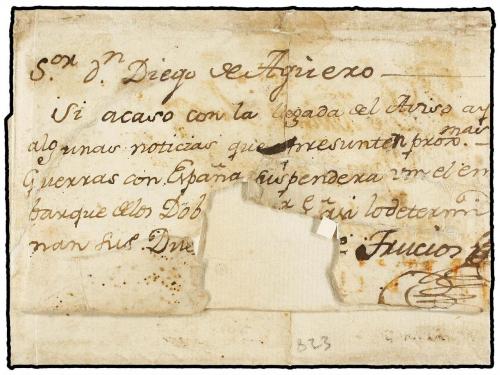 S.or d.n Diego de Agüero
Si acaso con la llegada del Aviso ay
algunas noticias que presunten proxi mas
Guerras con España suspendera vm el em
barque de los Dob qe assi lo determi
nan sus Due Frucios
823